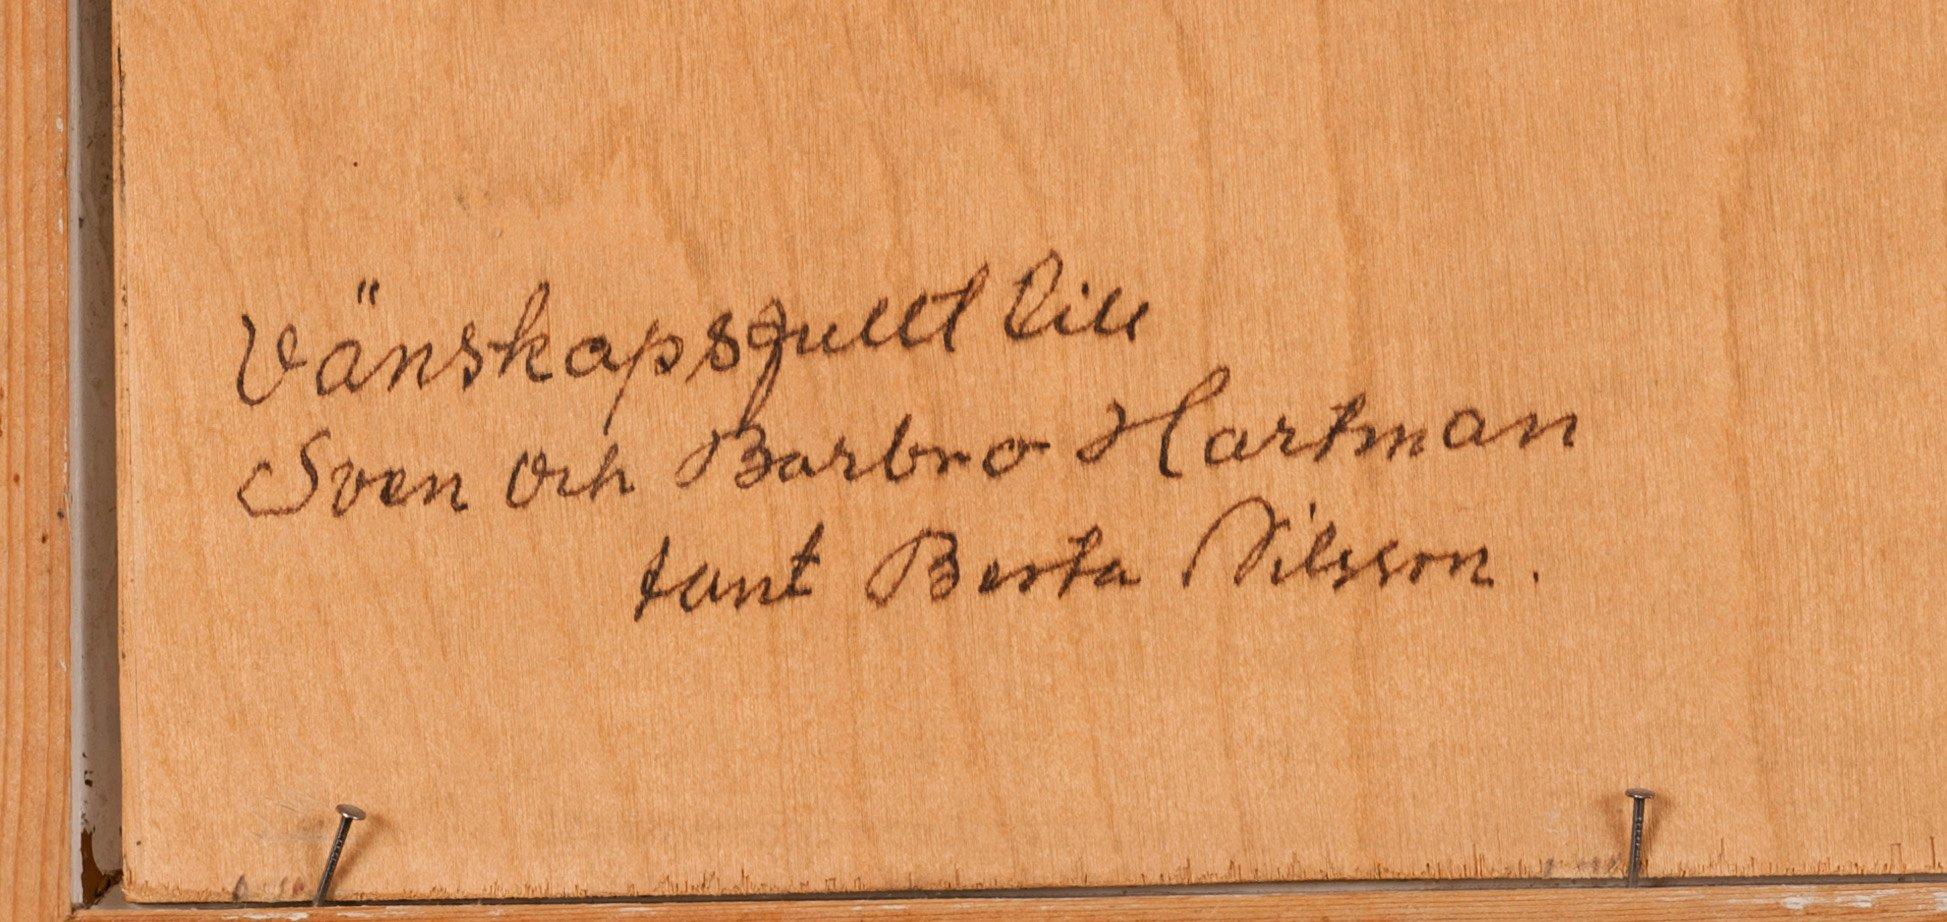 Vänskapsfullt till
Sven och Barbro Hartman
tant Berta Nilsson.